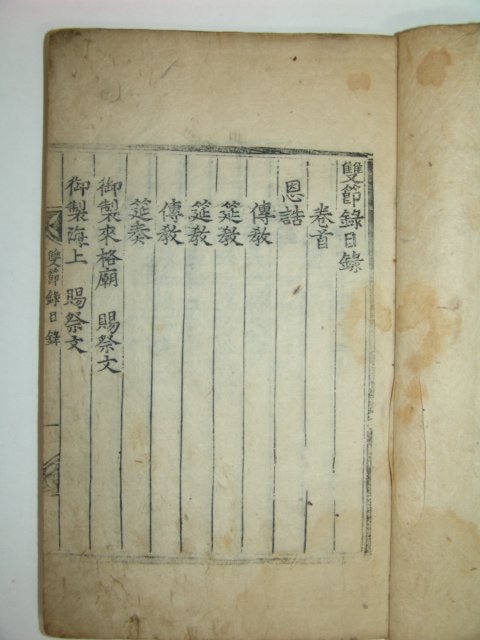 雙節錄目錄
卷首
恩誥
傳敎
筵敎
筵敎
傳敎
筵奏
御製來格廟　賜祭文
御製海上　賜祭文
雙節錄目錄
一